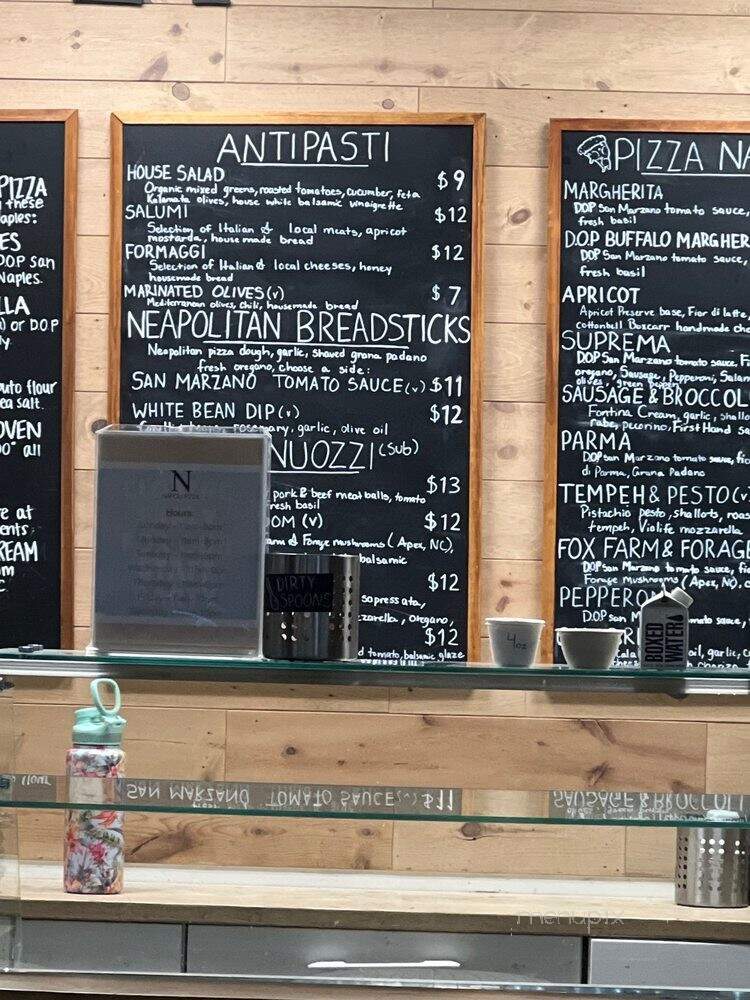 PIZZA
these
aples:
ES
DOP san
Naples.
LLA
) or D.O.P
uto flour
ea salt.
OVEN
00° all
re at
ents,
REAM
ANTIPASTI
HOUSE SALAD $9
Organic mixed greens, roasted tomatoes, cucumber, feta
Kalamata olives, house white balsamic vinaigrette
SALUMI $12
Selection of Italian & local meats, apricot
mostarda, house made bread
FORMAGGI $12
Selection of Italian & local cheeses, honey
housemade bread
MARINATED OLIVES (v) $7
Mediterranean olives, chili, housemade bread
NEAPOLITAN BREADSTICKS
Neapolitan pizza dough, garlic, shaved grana padano
fresh oregano, choose a side:
SAN MARZANO TOMATO SAUCE (v) $11
WHITE BEAN DIP (v) $12
rosemary, garlic, olive oil
NUOZZI (Sub)
$13
pork & beef meatballs, tomato
resh basil
OOM (v) $12
Forage mushrooms (Apex, NC),
balsamic
$12
sopressata,
zzarella, oregano,
$12
d tomato, balsamic glaze
PIZZA NA
MARGHERITA
DOP San Marzano tomato sauce,
fresh basil
D.O.P BUFFALO MARGHER
DOP San Marzano tomato sauce,
fresh basil
APRICOT
Apricot Preserve base, Fior di latte,
cottonbell Boxcarr handmade che
SUPREMA
DOP San Marzano tomato sauce, Fi
oregano, Sausage, Pepperoni, Salam
olives, green pepper
SAUSAGE & BROCCOL
Fontina Cream, garlic, shallo
rabe, pecorino, First Hand sa
PARMA
DOP San Marzano tomato sauce, fio
di Parma, Grana Padano
TEMPEH & PESTO (v
Pistachio pesto, shallots, roas
tempeh, Violife mozzarella
FOX FARM & FORAGE
DOP San Marzano tomato sauce, fi
Forage mushrooms (Apex, NC),
PEPPERON
D.O.P San
mato sauce,
oil, garlic, c
N
NAPOLI PIZZA
Hours:
DIRTY
SPOONS
4oz
BOXED
WATER
SAN MARZANO TOMATO SAUCE (v) $11
SAUSAGE & BROCCOLI
menupix